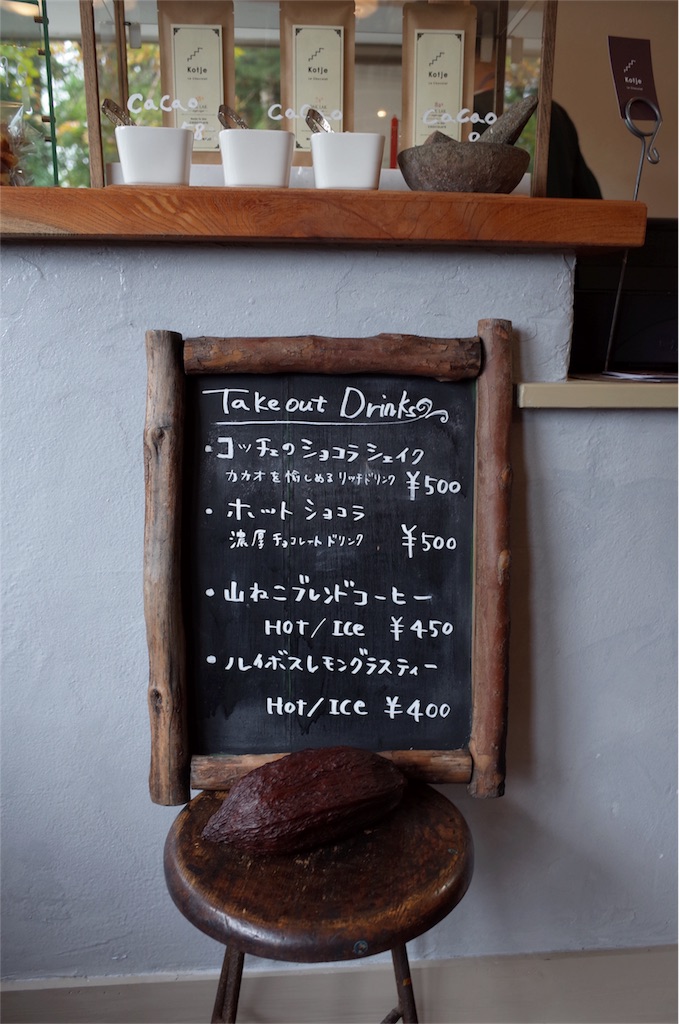 Kotje
Kotje
Kotje
Kotje
cacao
58
cacao
cacao
Take out Drinks
・コッチェのショコラシェイク
カカオを愉しめるリッチドリンク ¥500
・ホットショコラ
濃厚チョコレートドリンク ¥500
・山ねこブレンドコーヒー
HOT/ICE ¥450
・ルイボスレモングラスティー
Hot/ICE ¥400